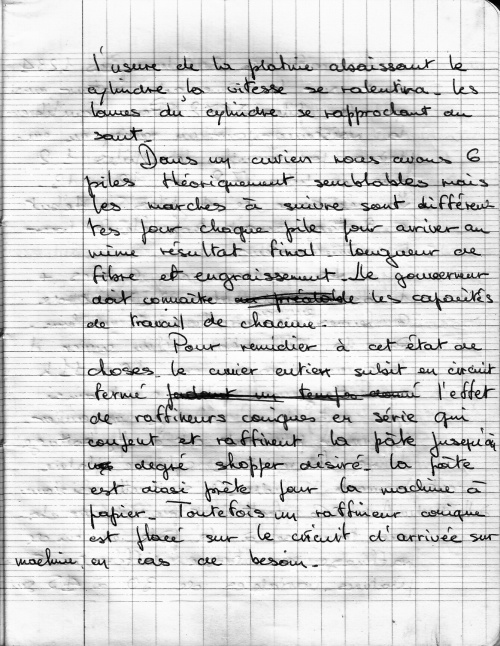 l'usure de la platine abaissant le
cylindre la vitesse se ralentira. les
lames du cylindre se rapprochant du
saut.
Dans un cuvier nous avons 6
piles théoriquement semblables mais
les marches à suivre sont différen
tes pour chaque pile pour arriver au
même résultat final. longueur de
fibre et engraissement. le gouverneur
doit connaître au préalable les capacités
de travail de chacune.
Pour remédier à cet état de
choses le cuvier entier subit en circuit
fermé pendant un temps donné l'effet
de raffineurs coniques en série qui
coupent et raffinent la pâte jusqu'au
degré shopper désiré. la pâte
est ainsi prête pour la machine à
papier. Toutefois un raffineur conique
est placé sur le circuit d'arrivée sur
machine en cas de besoin.